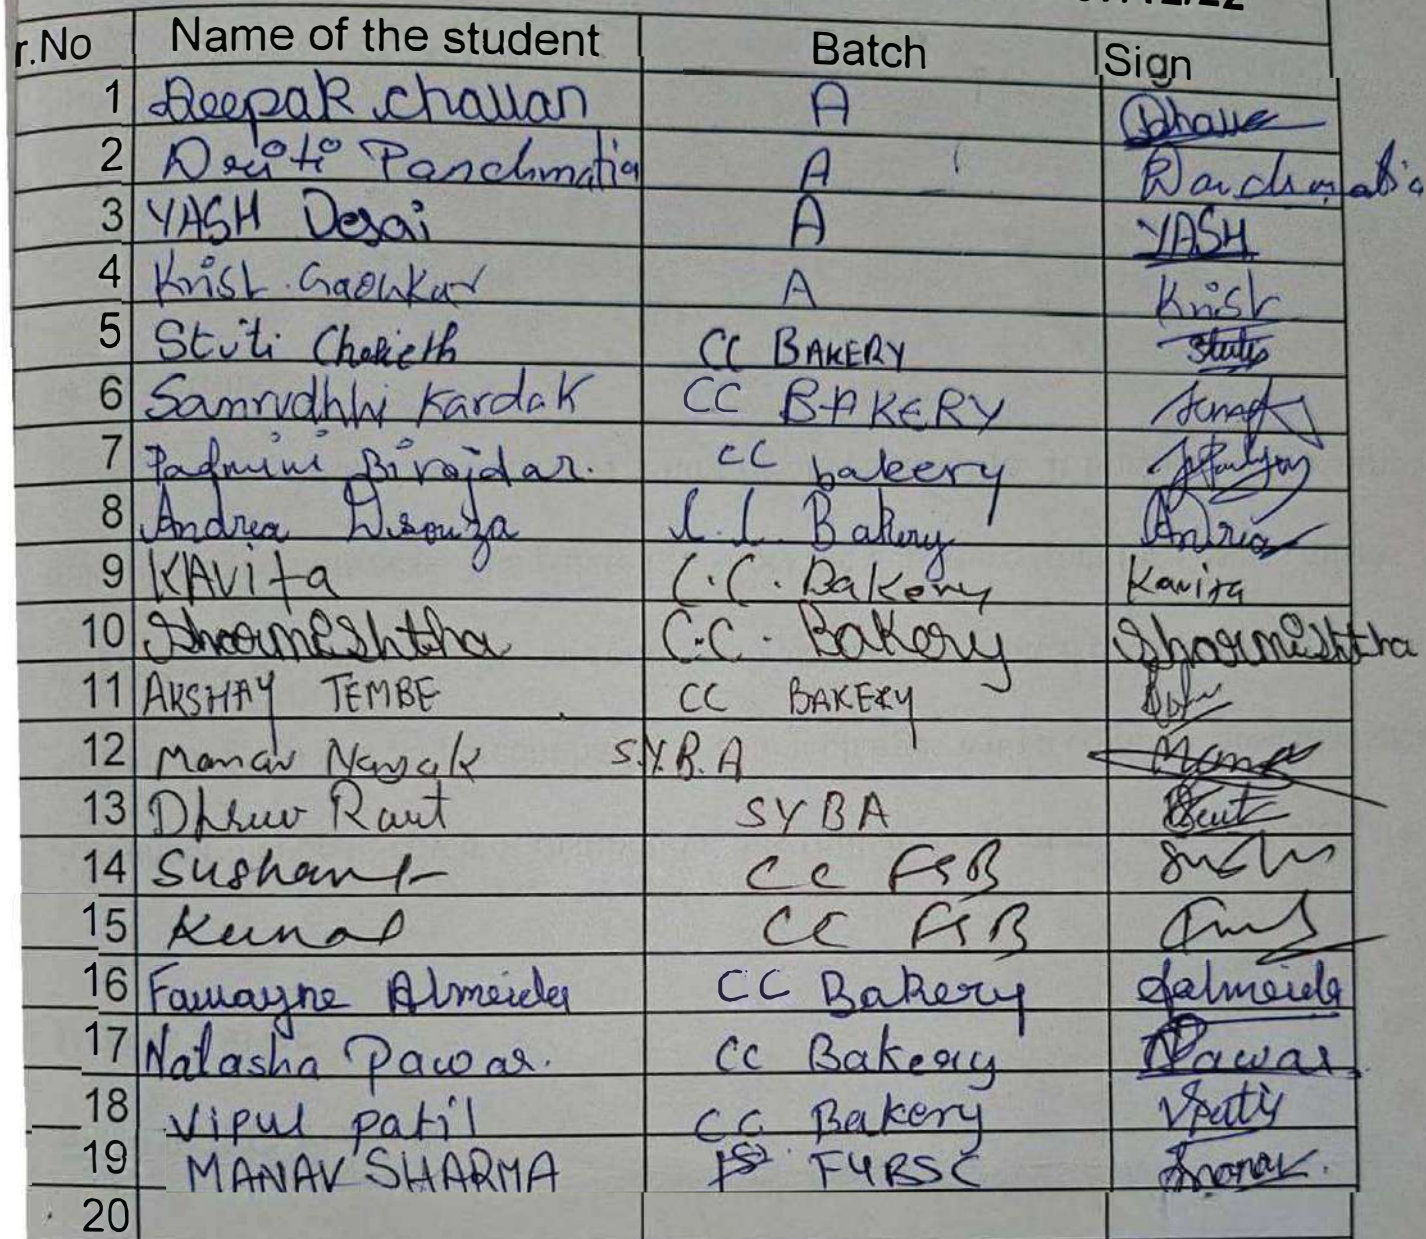 12/22
r.No Name of the student Batch Sign
1 Deepak chauan A
2 Driti Panchmatia A Panchmatia
3 YASH Desai A YASH
4 Krish Gaonkar A Krish
5 Stuti CC BAKERY Stuti
6 Samrudhhi Kardak CC BAKERY
7 Padmini Birajdar. CC bakery
8 Andrea Dsouza C.C. Bakery Andrea
9 KAVita C.C. Bakery Kavita
10 Sharmishtha C.C. Bakery Sharmishtha
11 AKSHAY TEMBE CC BAKERY
12 Manav Nayak S.Y.B.A
13 Dhruv Raut SYBA Raut
14 Sushant CC F&B
15 Kunal CC F&B
16 Fawayne Almeida CC Bakery falmeida
17 Natasha Pawar. CC Bakery NPawar
18 Vipul patil CC Bakery Vpatil
19 MANAV SHARMA FYBSC
20